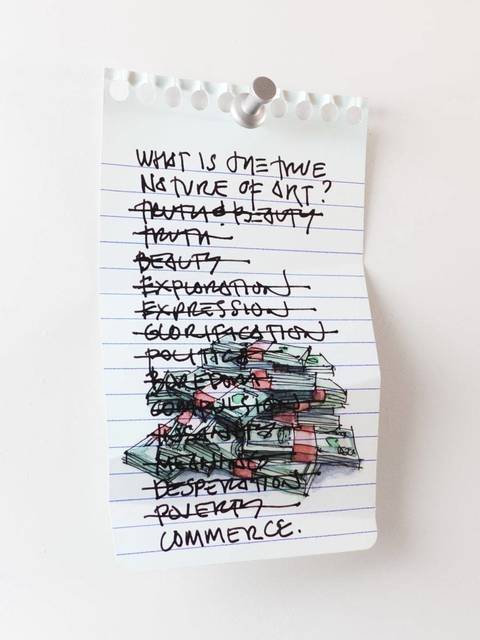 WHAT IS THE TRUE
NATURE OF ART?
TRUTH & BEAUTY
TRUTH
BEAUTY
EXPLORATION
EXPRESSION
GLORIFICATION
POLITICS
BOREDOM
COMPULSION
INSANITY
MEANING
DESPERATION
POVERTY
COMMERCE.